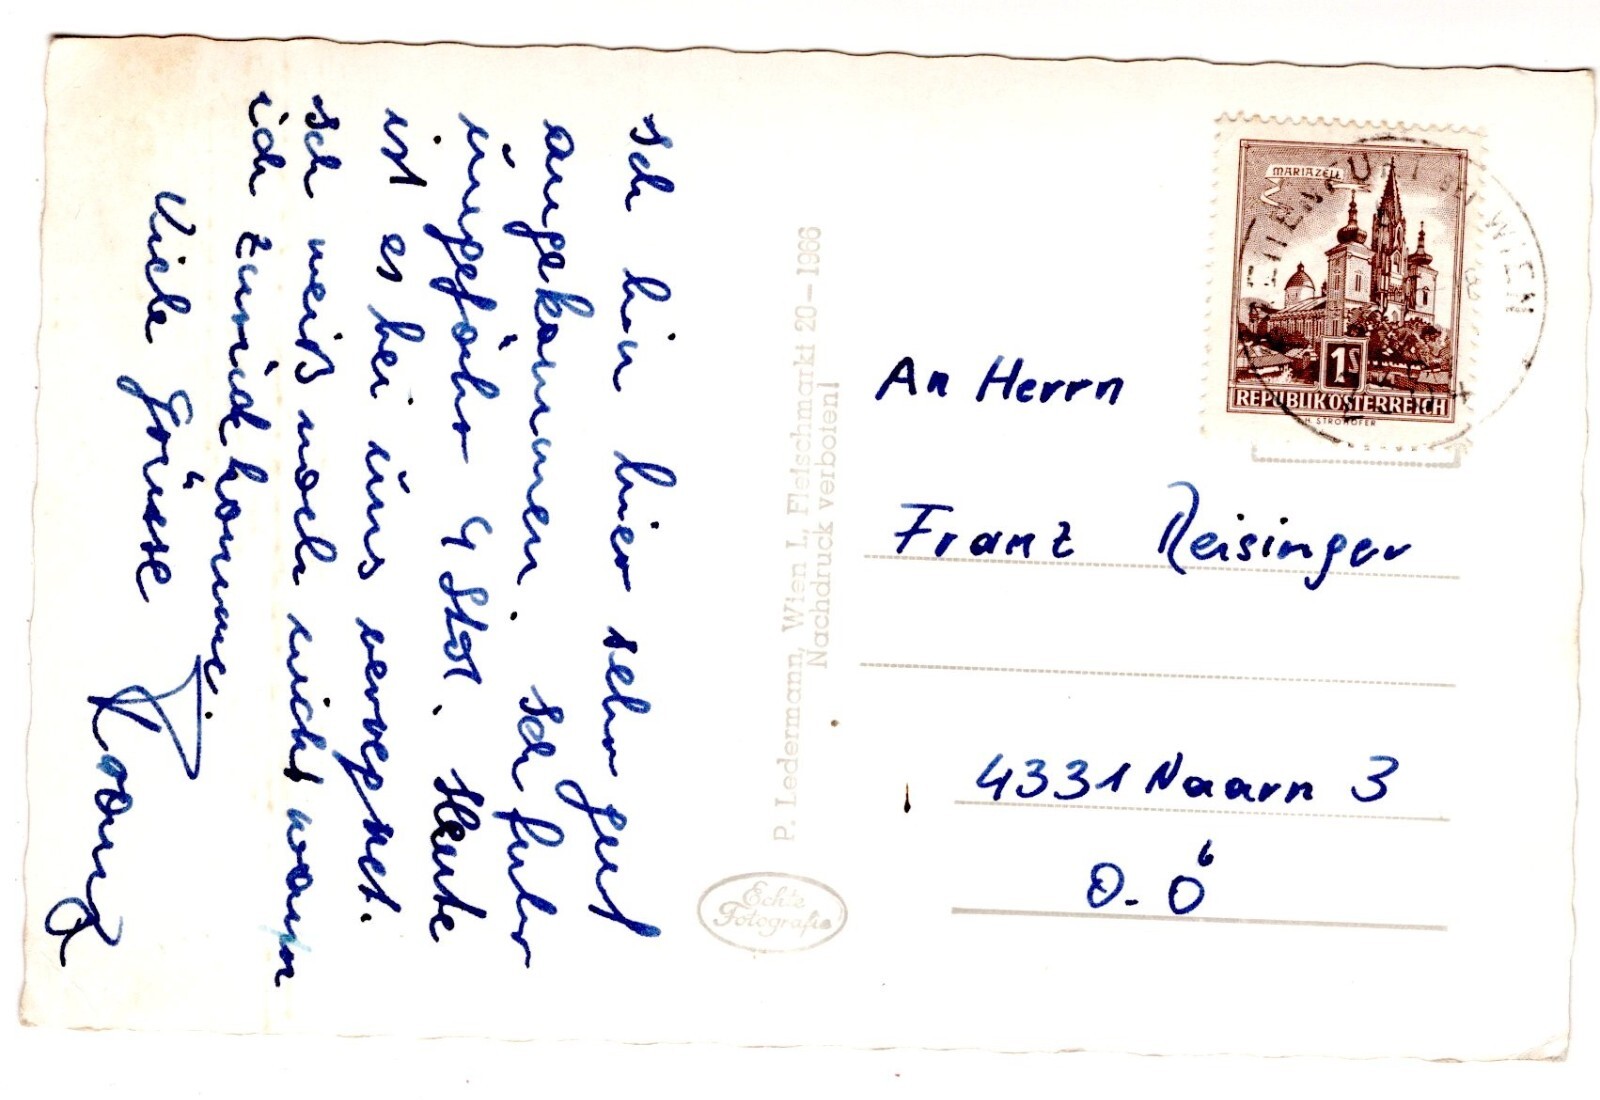 Ich bin hier sehr gut
angekommen. Ich fuhr
ungefähr 4 Std. Heute
ist es bei uns veregnet.
Ich weiß noch nicht wann
ich zurückkomme.
Viele Grüsse
P. Ledermann, Wien I., Fleischmarkt 20-1966
Nachdruck verboten!
Echte
Fotografie
MARIAZELL
1S
REPUBLIK ÖSTERREICH
H. STROHOFER
BEI WIEN
An Herrn
Franz Reisinger
4331 Naarn 3
O.Ö